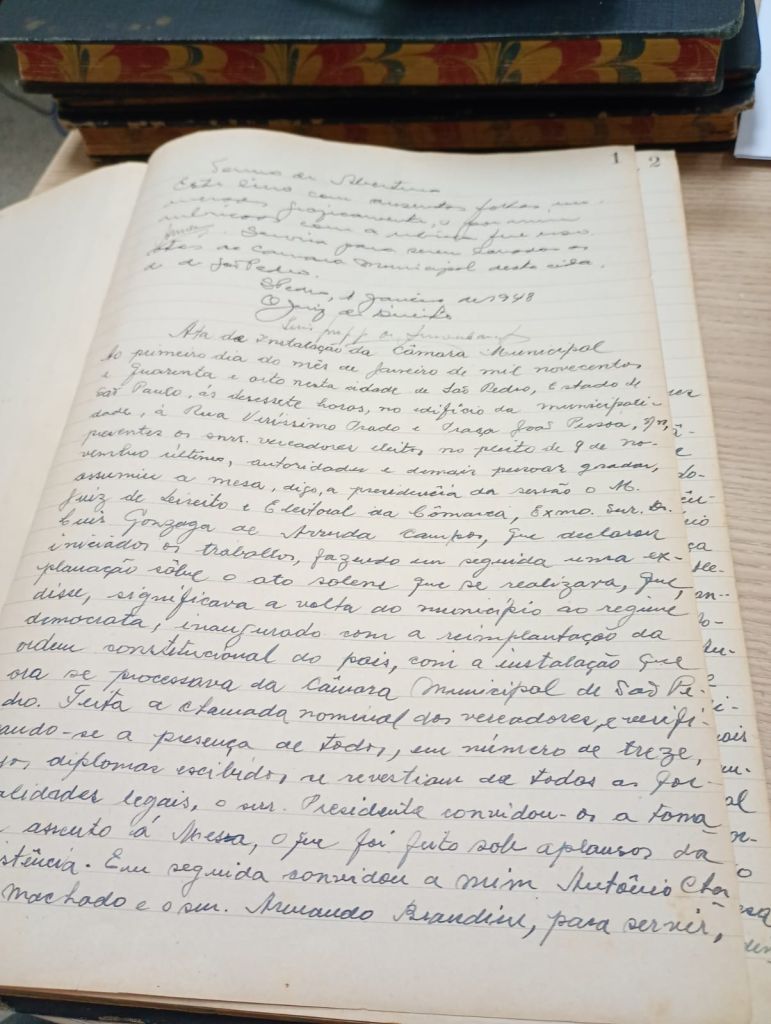 1
2
Termo de Abertura
Este livro com duzentos folhas nu-
meradas graficamente, e por mim
rubricadas com a rubrica que uso
servirá para serem lavradas as
Atas da Camara Municipal desta cida-
de de São Pedro.
S. Pedro, 1 Janeiro de 1948
O Juiz de Direito
Ata de Instalação da Câmara Municipal
Ao primeiro dia do mês de Janeiro de mil novecentos
e quarenta e oito nesta cidade de São Pedro, Estado de
São Paulo, ás desessete horas, no edifício da municipali-
dade, á Rua Veríssimo Prado e Praça João Pessoa, s/n,
presentes os snrs. vereadores eleitos, no pleito de 9 de no-
vembro último, autoridades e demais pessoas gradas,
assumiu a mesa, digo, a presidência da sessão o M.
Juiz de Direito e Eleitoral da Cômarca, Exmo. Snr. Dr.
Luis Gonzaga de Arruda Campos, que declarou
iniciados os trabalhos, fazendo em seguida uma ex-
planação sôbre o ato solene que se realizava, que,
disse, significava a volta do município ao regime
democrata, inaugurado com a reimplantação da
ordem constitucional do pais, com a instalação que
ora se processava da Câmara Municipal de São Pe-
dro. Feita a chamada nominal dos vereadores, e verifi-
cando-se a presença de todos, em número de treze,
diplomas exibidos, se revestiam de todas as for-
alidades legais, o snr. Presidente convidou-os a toma
assento á Mesa, o que foi feito sob aplausos da
stência. Em seguida convidou a mim Antônio
Machado e o snr. Armando Brandini, para servir,